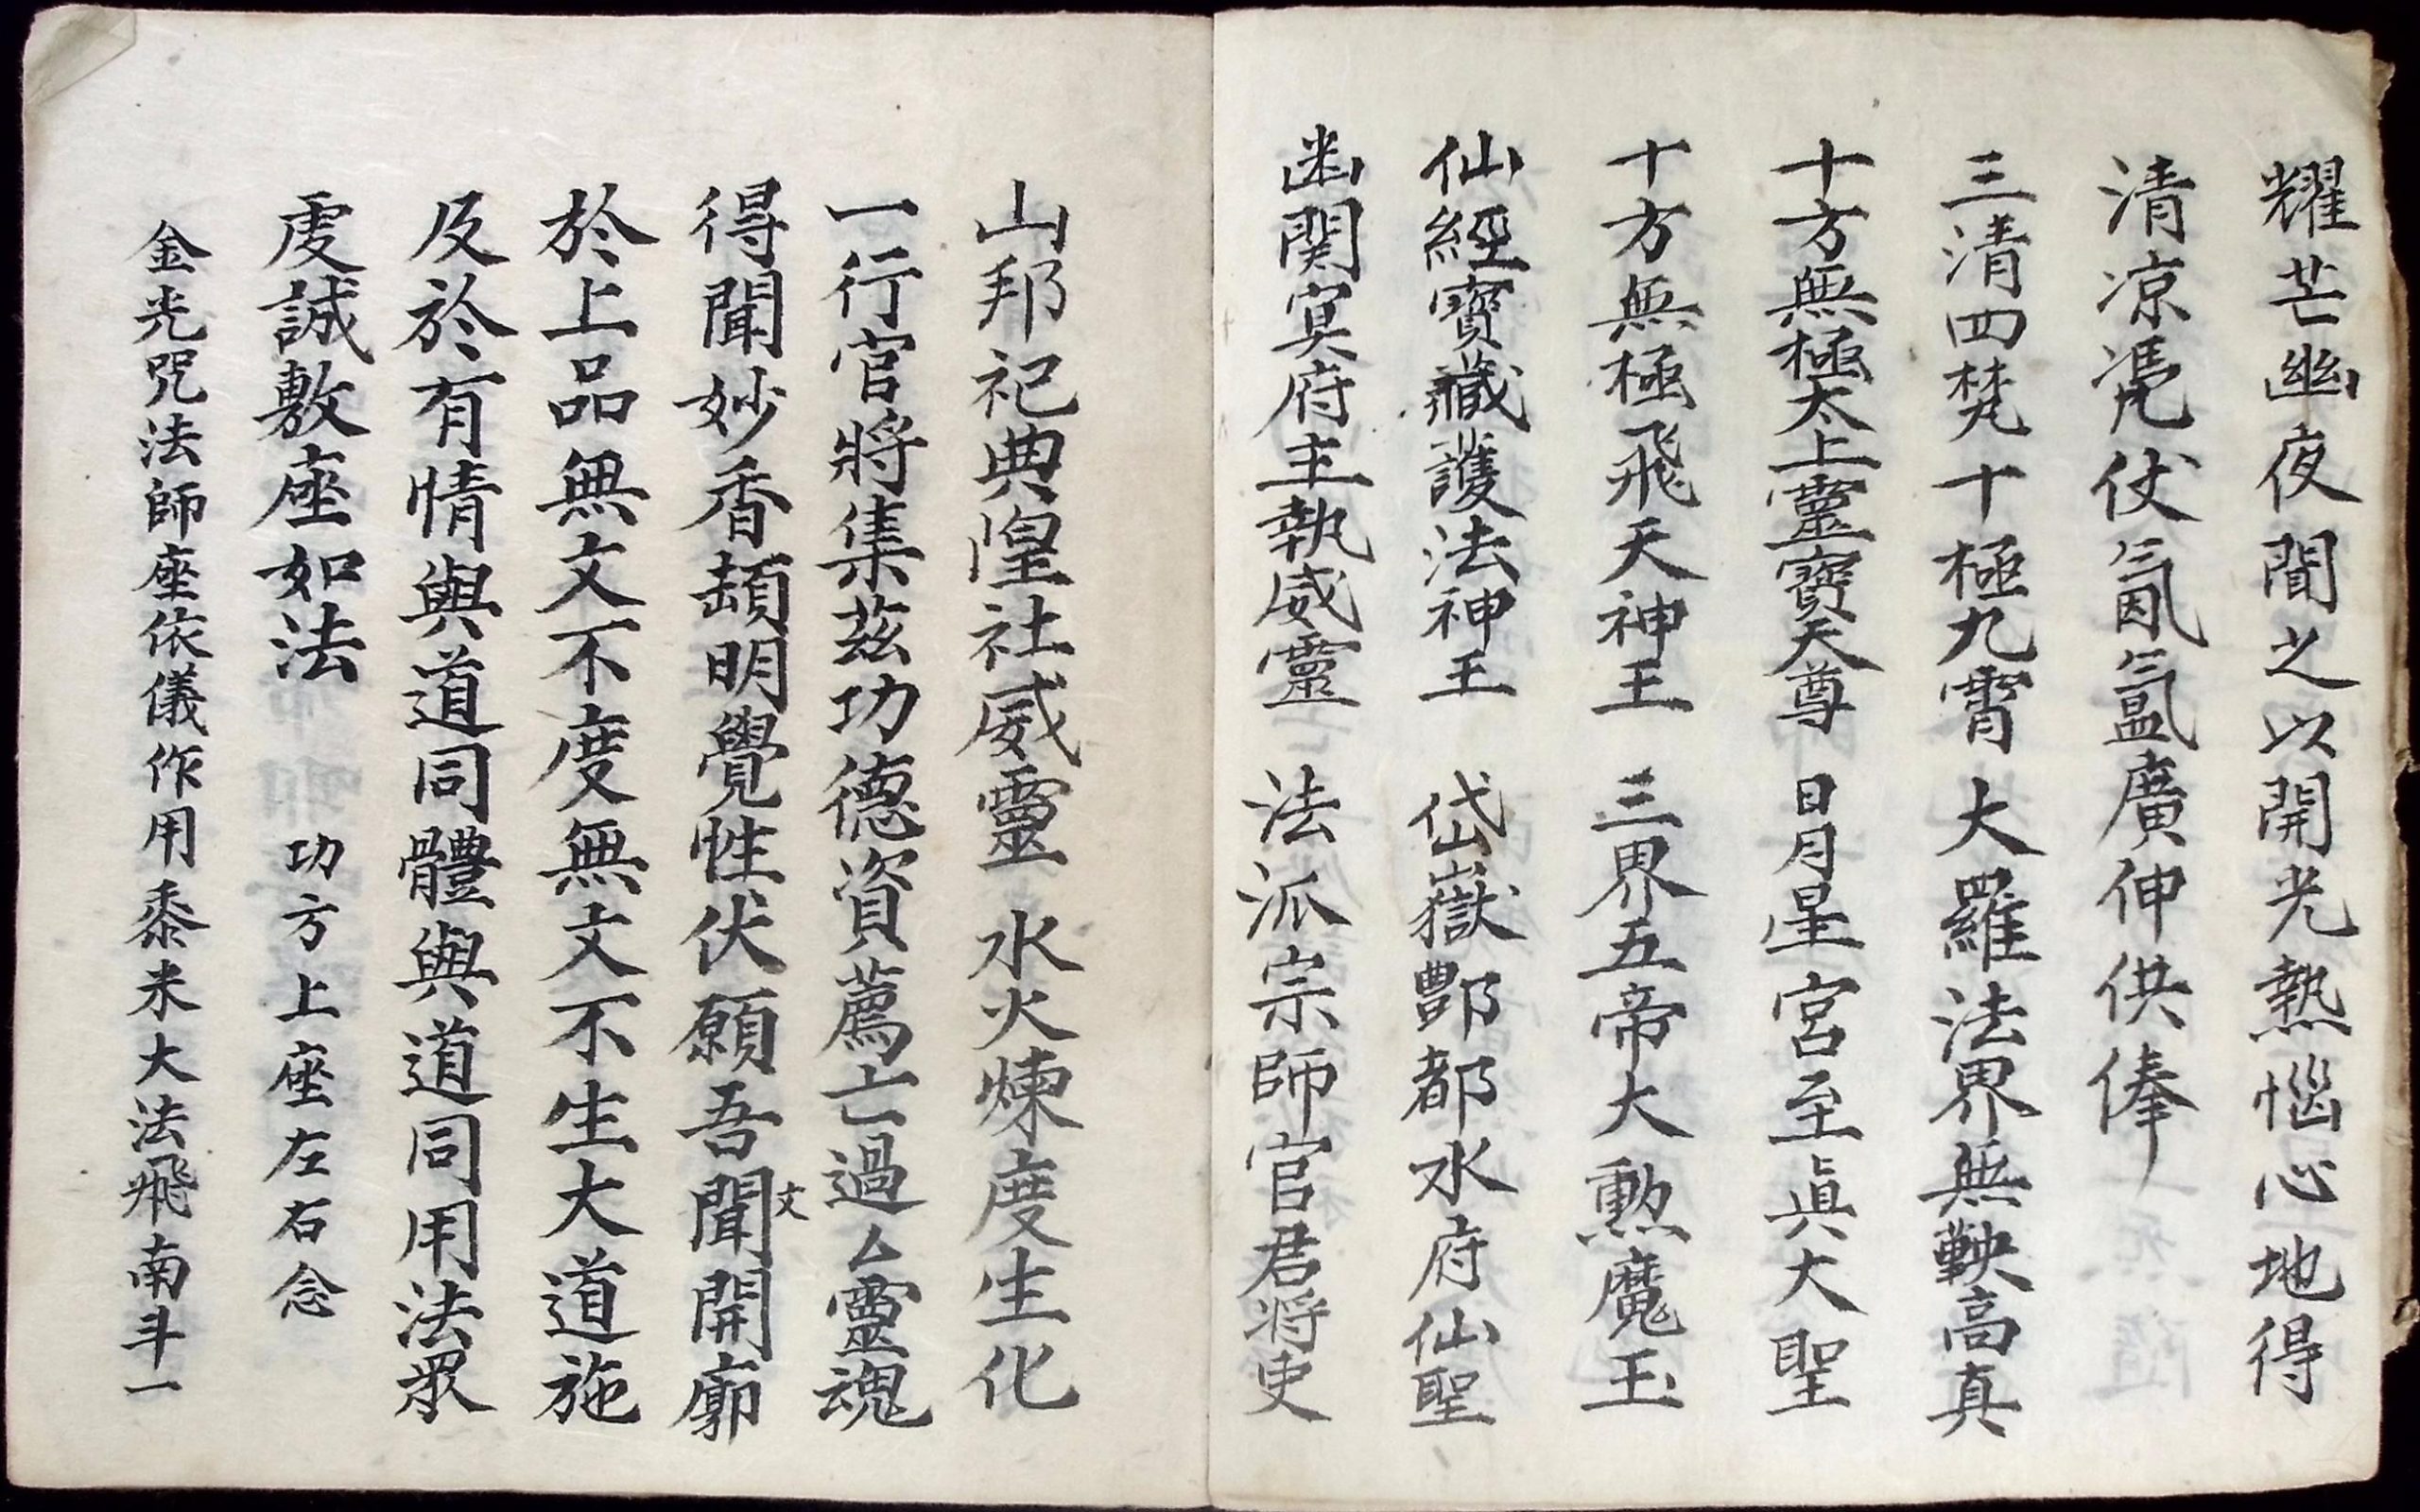 耀芒幽夜聞之以開光熱惱心地得
清凉凴仗氤氲廣伸供俸
三清四梵十極九霄 大羅法界無鞅高真
十方無極太上靈寶天尊 日月星宮至真大聖
十方無極飛天神王 三界五帝大勲魔王
仙經寶藏護法神王 岱嶽酆都水府仙聖
幽関冥府主執威靈 法派宗師官君将吏
山邦祀典隍社威靈 水火煉度生化
一行官將集茲功德資薦亡過厶靈魂
得聞妙香頡明覺性伏願吾聞文開廓
於上品無文不度無文不生大道施
及於有情與道同體與道同用法眾
虔誠敷座如法 功方上座左右念
金光咒法師座依儀作用黍米大法飛南斗一